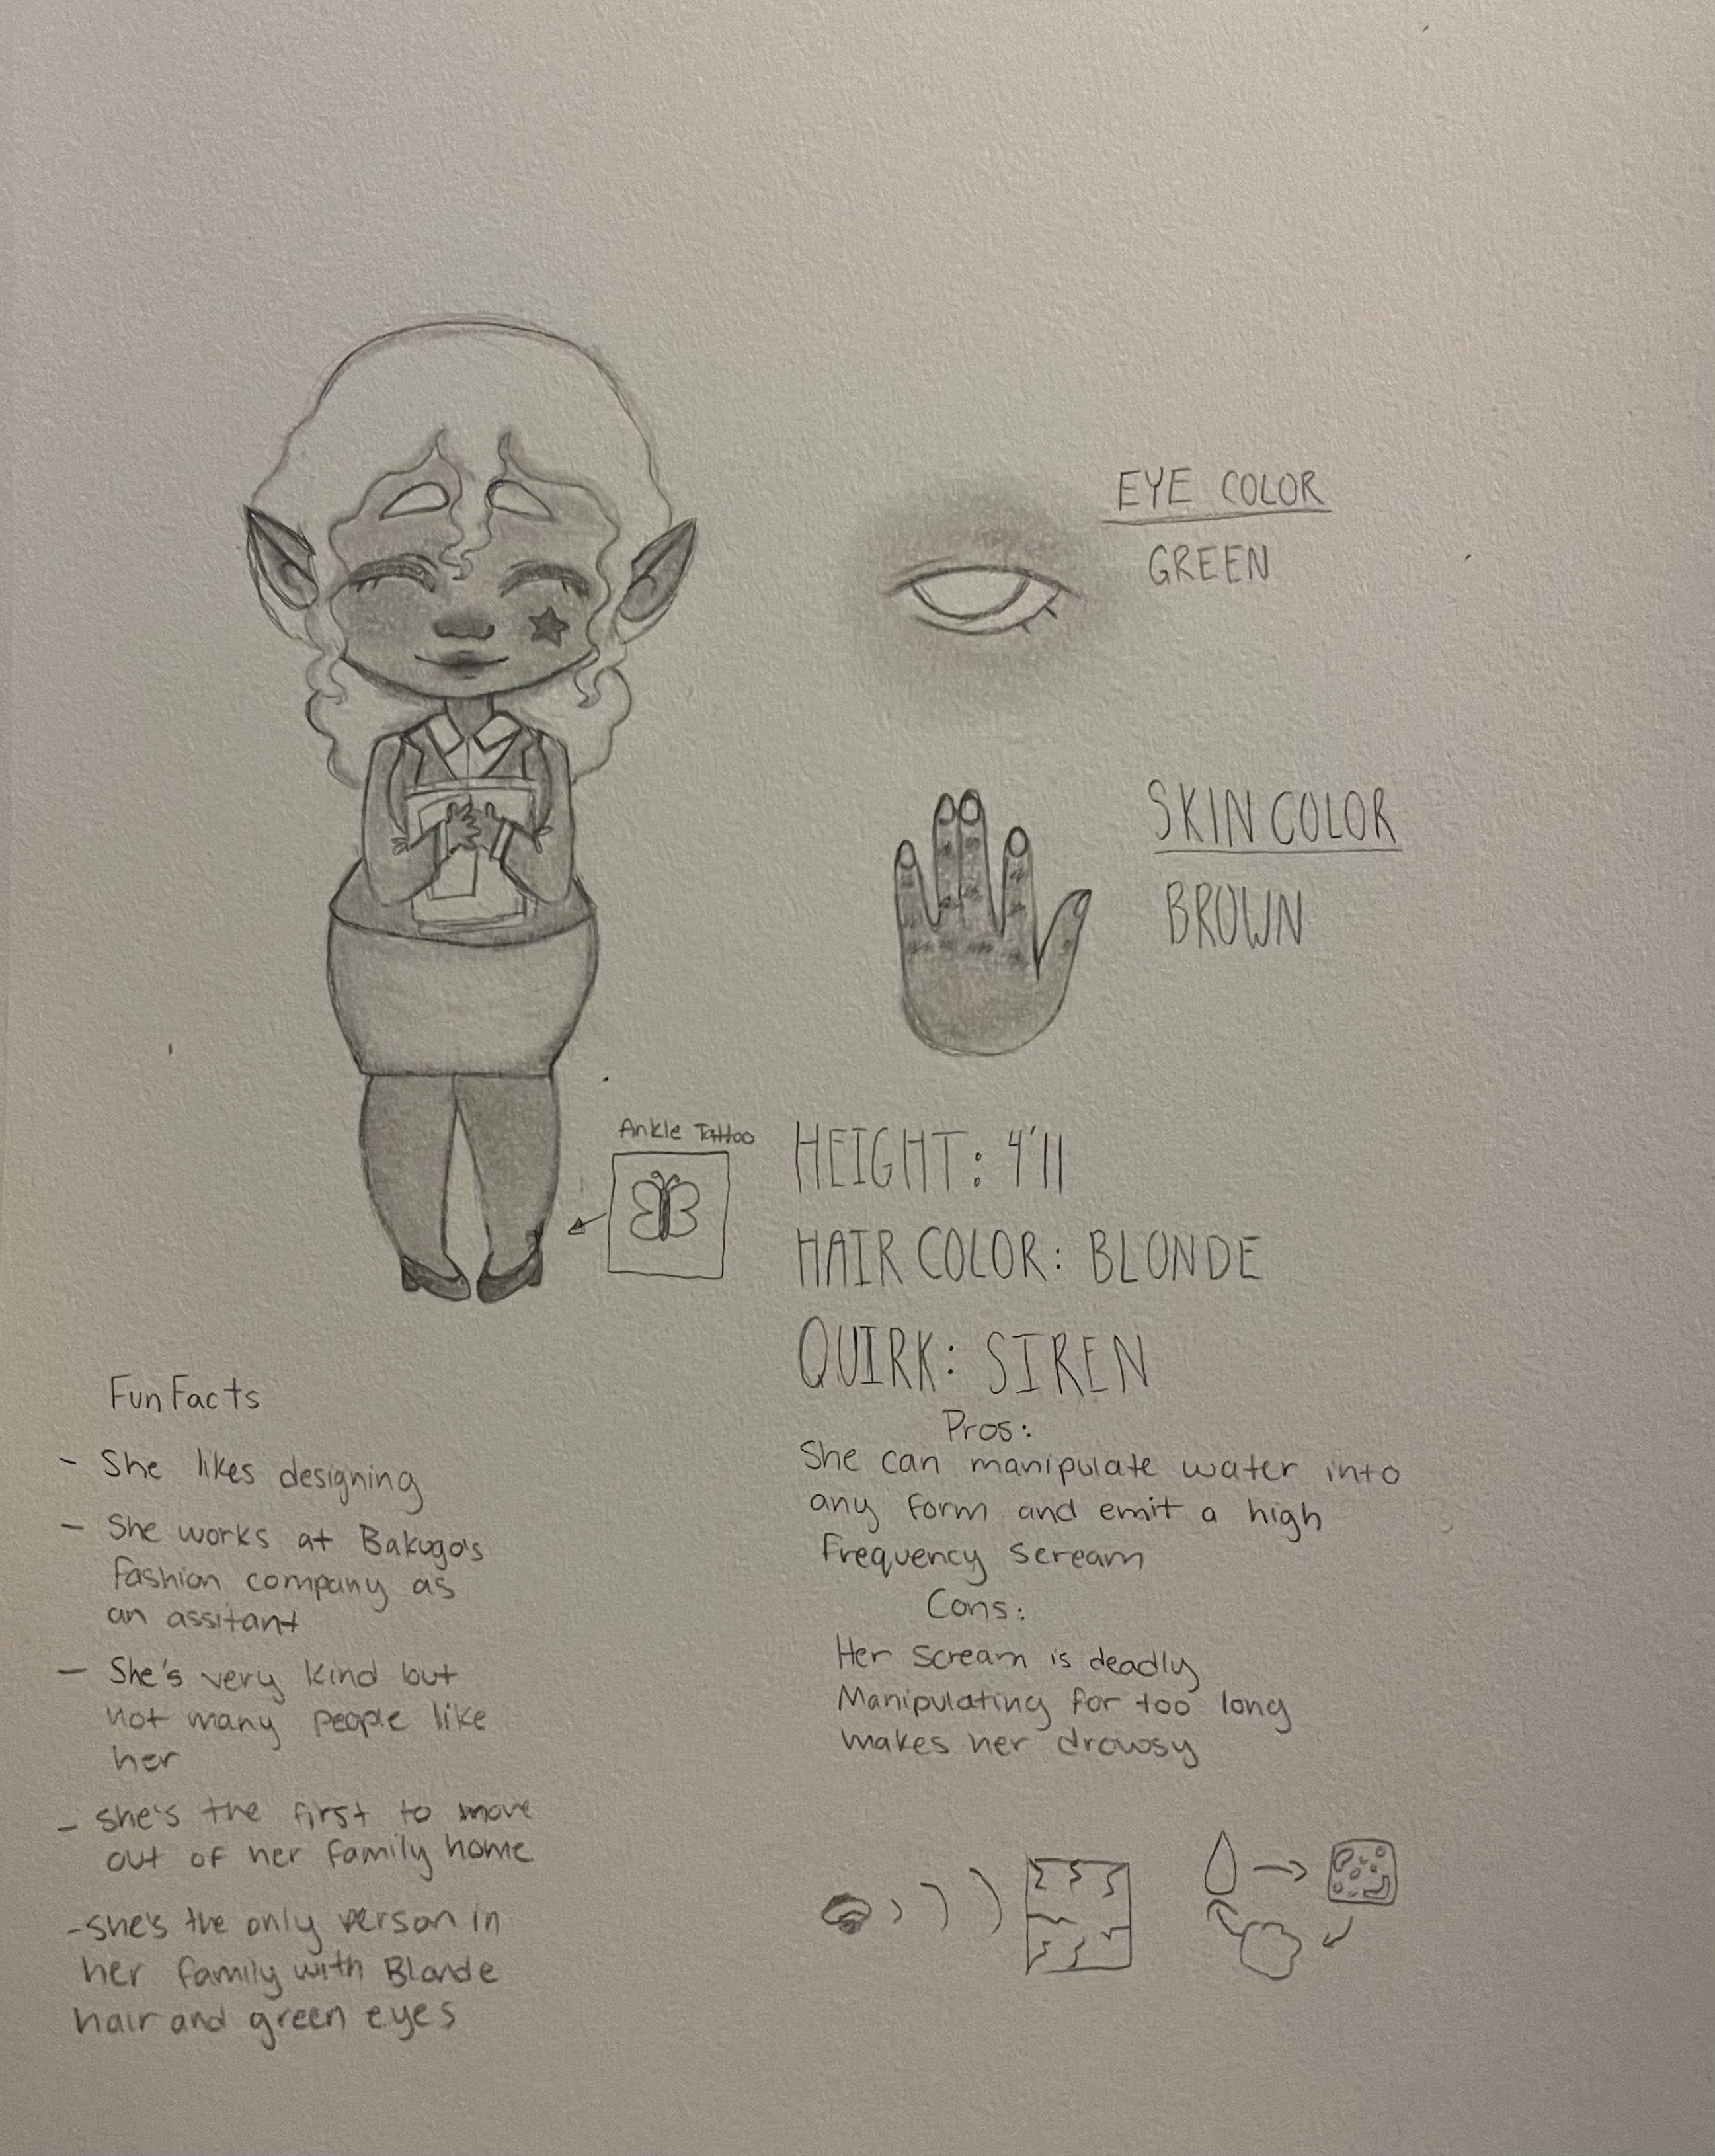 EYE COLOR
GREEN
SKIN COLOR
BROWN
Ankle Tattoo
HEIGHT: 4'11
HAIR COLOR: BLONDE
QUIRK: SIREN
Pros:
She can manipulate water into
any form and emit a high
frequency scream
Cons:
Her scream is deadly
Manipulating for too long
makes her drowsy
Fun Facts
- She likes designing
- She works at Bakugo's
fashion company as
an assitant
- She's very kind but
not many people like
her
- she's the first to move
out of her family home
- she's the only person in
her family with Blonde
hair and green eyes